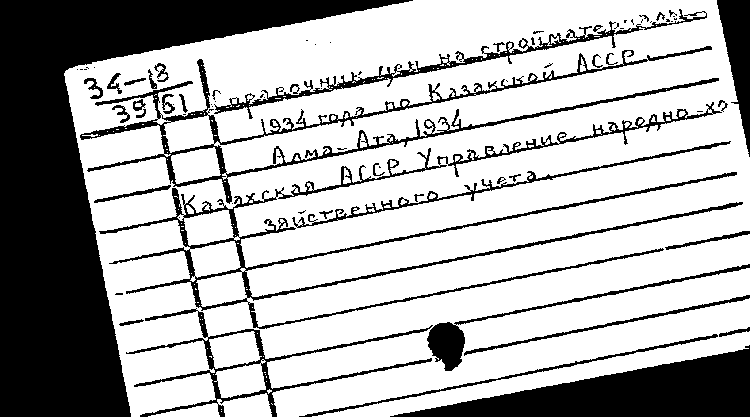 34-18
3961
Справочник цен на стройматериалы
1934 года по Казакской АССР.
Алма-Ата, 1934.
Казахская АССР. Управление народно-хо-
зяйственного учета.